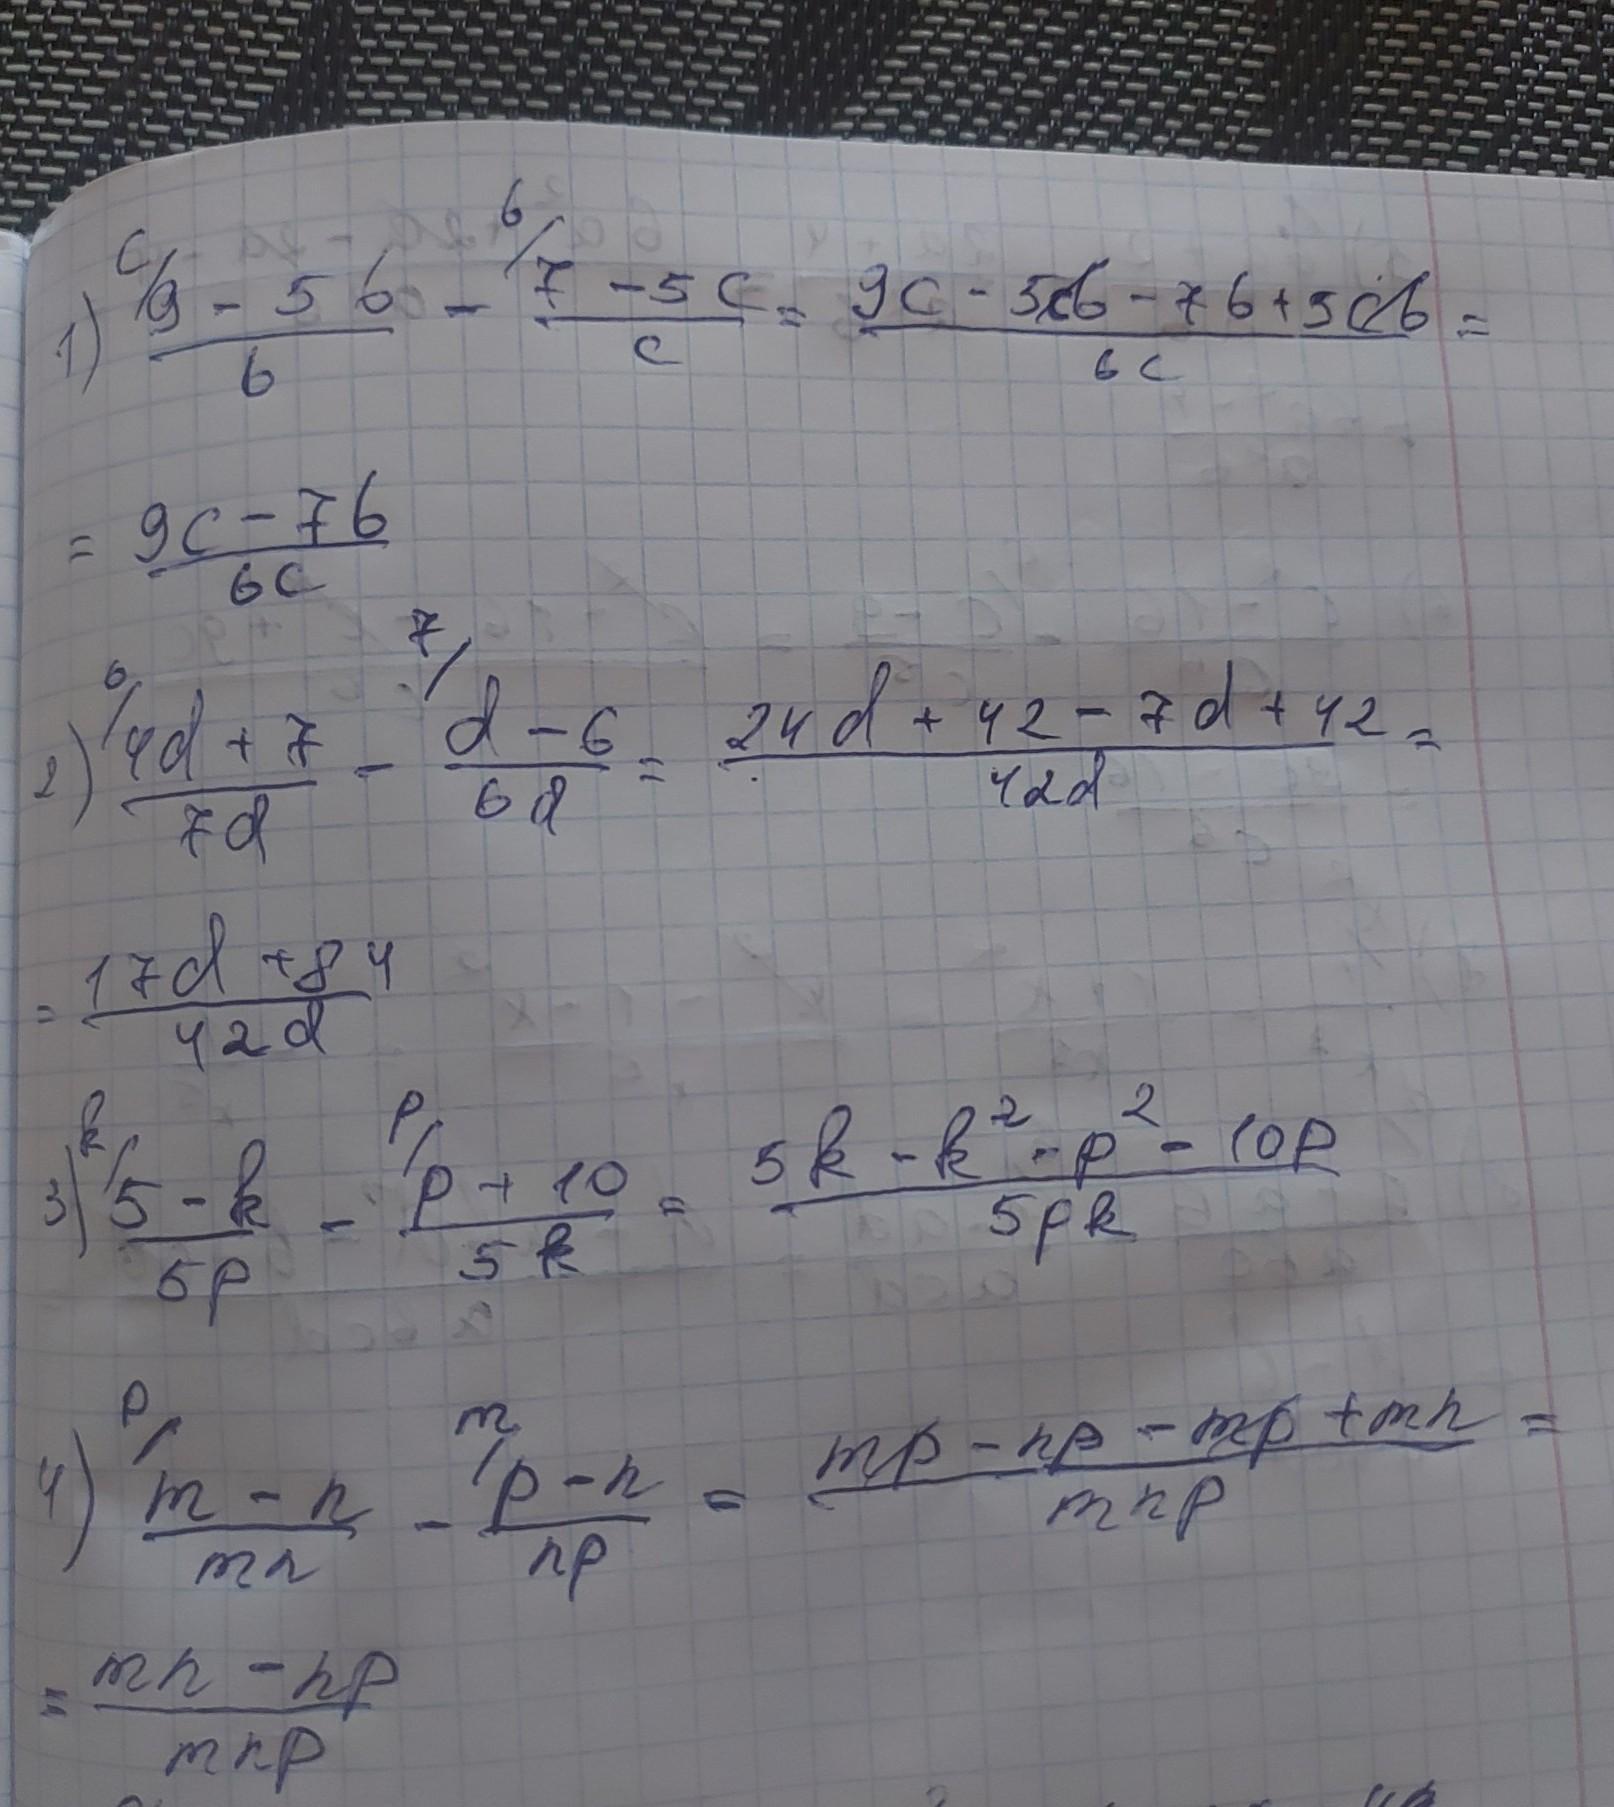 1) c/ (9 - 5b)/b - b/ (7 - 5c)/c = (9c - 5cb - 7b + 5cb)/bc =
= (9c - 7b)/bc
2) 6/ (4d + 7)/7d - 7/ (d - 6)/6d = (24d + 42 - 7d + 42)/42d =
= (17d + 84)/42d
3) k/ (5 - k)/5p - p/ (p + 10)/5k = (5k - k² - p² - 10p)/5pk
4) p/ (m - n)/mn - m/ (p - n)/np = (mp - np - mp + mn)/mnp =
= (mn - np)/mnp